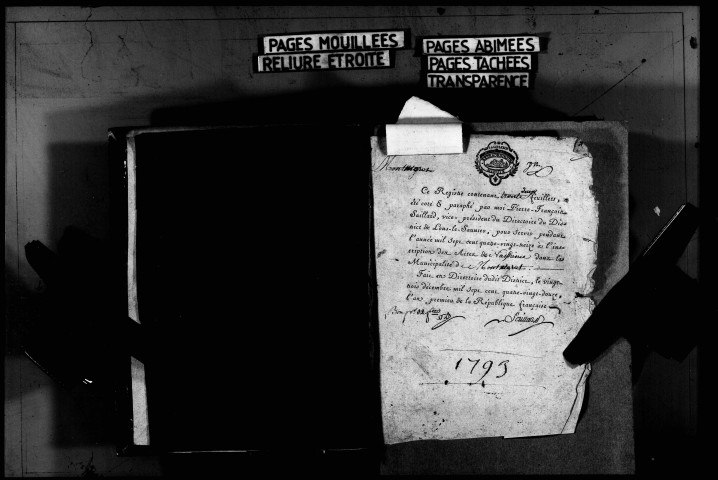 PAGES MOUILLEES
RELIURE ETROITE
PAGES ABIMEES
PAGES TACHEES
TRANSPARENCE
Ce Registre contenant feuillets, a
été coté & paraphé par moi Pierre-François
vice-président du Directoire du Dis-
trict de Lons-le-Saunier, pour servir pendant
l'année mil sept cent quatre-vingt-treize à l'ins-
cription des Actes de Naissance dans la
Municipalité de
Fait en Directoire dudit District, le vingt-
trois décembre mil sept cent quatre-vingt-douze,
l'an premier de la République françoise
1793